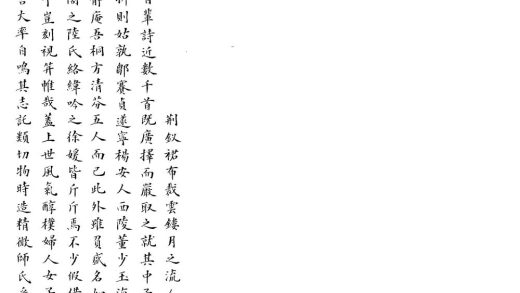 荆釵裙布裁雲鏤月之流
輩詩近數千首既廣擇而嚴取之就其中
則姑孰鄒賽貞遂寧楊安人西陵董少玉
靜庵吾桐方清芬五人而已此外雖負盛名如
閣之陸氏絡緯吟之徐媛皆斤斤焉不少假借
豈刻視笄帷哉蓋上世風氣醇樸婦人女子
言大率自鳴其志託類切物時造精微師氏